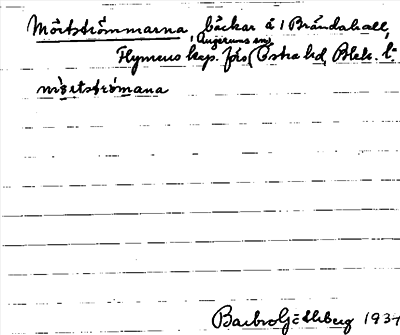 Mörtströmmarna, bäckar å 1 Brändahall,
Augerums sn,
Flymens kap. förs, Östra hd, Blek. l.
mörtströmana
Barbro Göthberg 1934